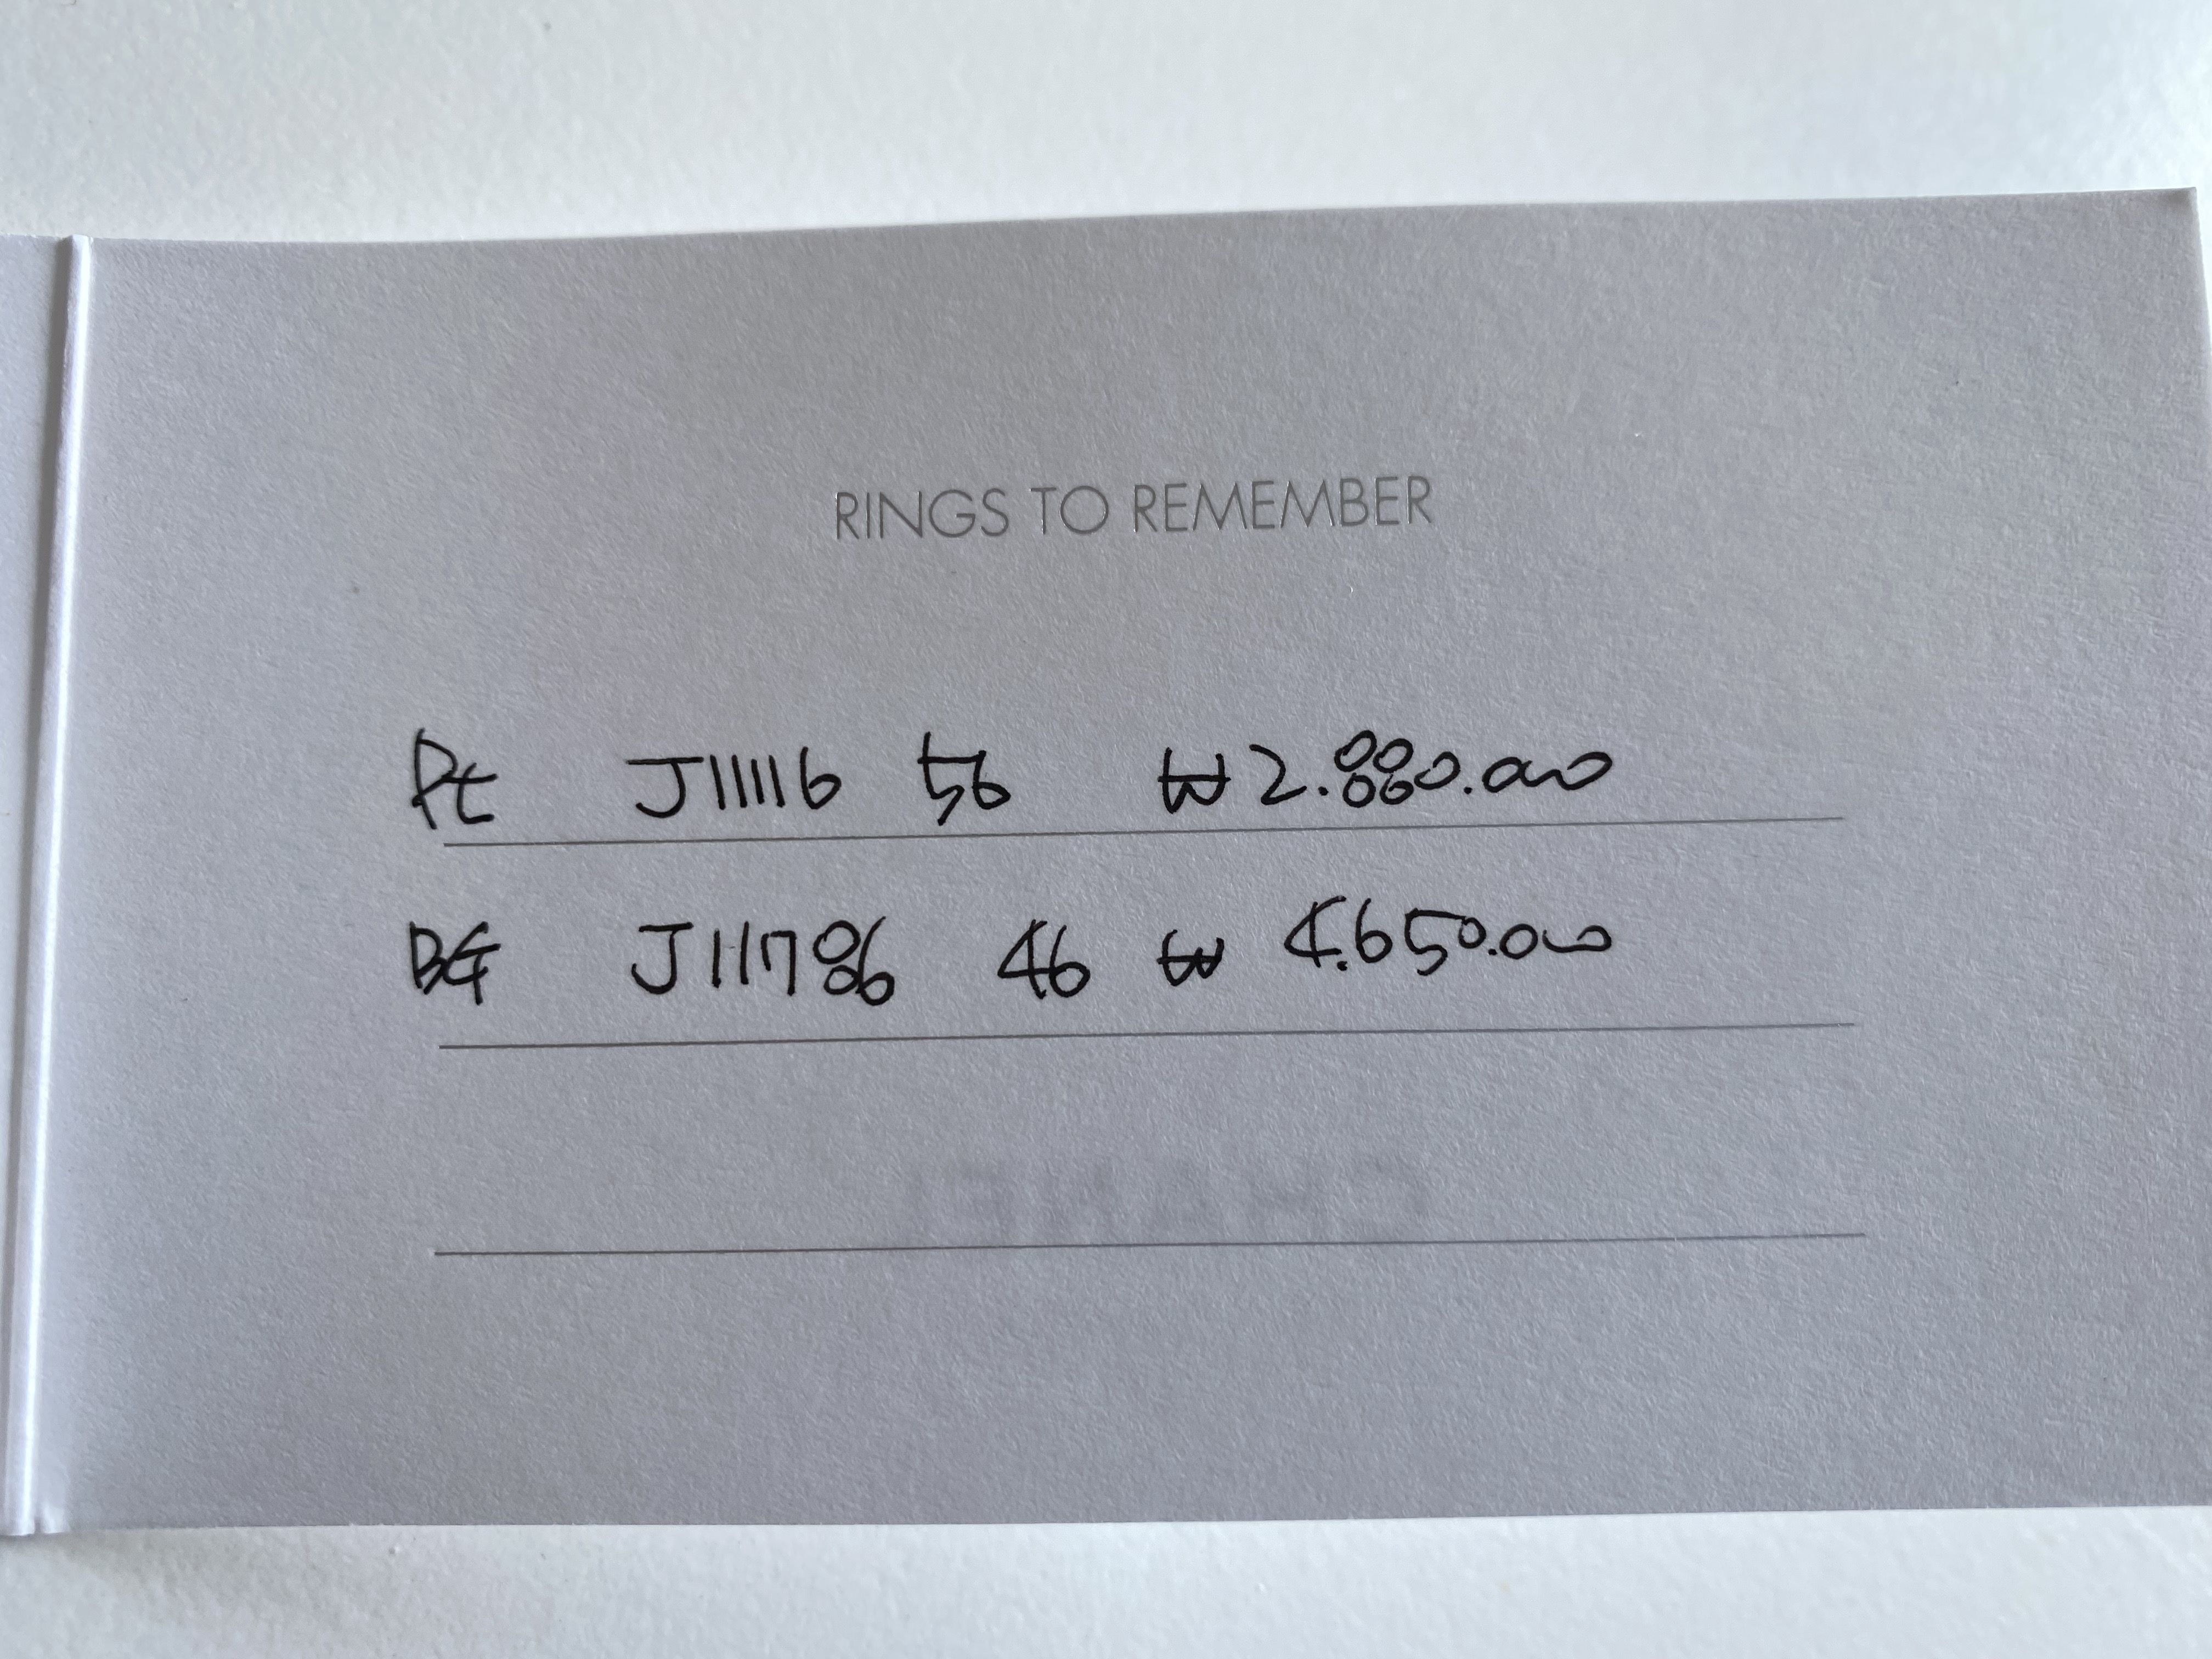 RINGS TO REMEMBER
Pt J11116 56 ₩2.880.000
BG J11786 46 ₩ 4.650.000
CHANEL